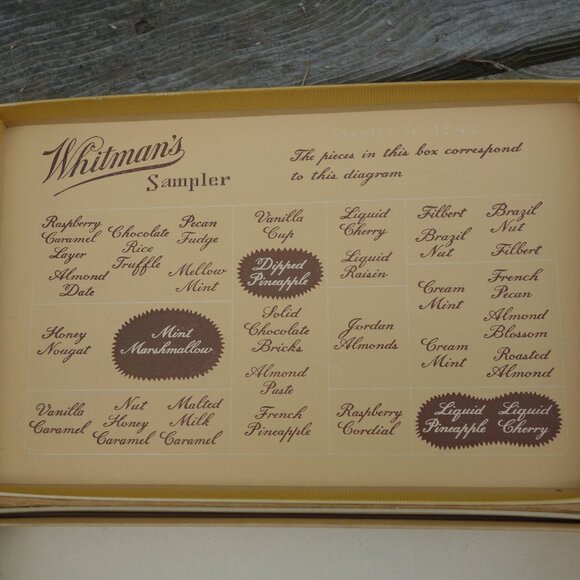 Whitman's
Sampler
The pieces in this box correspond
to this diagram
Raspberry
Caramel
Layer
Almond
Date
Chocolate
Rice
Truffle
Pecan
Fudge
Mellow
Mint
Honey
Nougat
Mint
Marshmallow
Vanilla
Caramel
Nut
Honey
Caramel
Malted
Milk
Caramel
Vanilla
Cup
Dipped
Pineapple
Solid
Chocolate
Bricks
Almond
Paste
French
Pineapple
Liquid
Cherry
Liquid
Raisin
Jordan
Almonds
Raspberry
Cordial
Filbert
Brazil
Nut
Brazil
Nut
Filbert
Cream
Mint
Cream
Mint
French
Pecan
Almond
Blossom
Roasted
Almond
Liquid
Pineapple
Liquid
Cherry